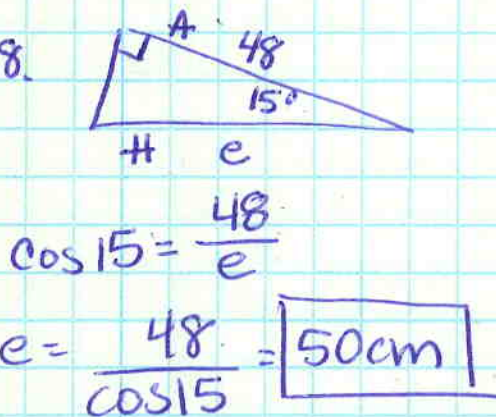 8.
A 48
15°
H e
cos 15 = 48/e
e = 48/cos15 = 50cm